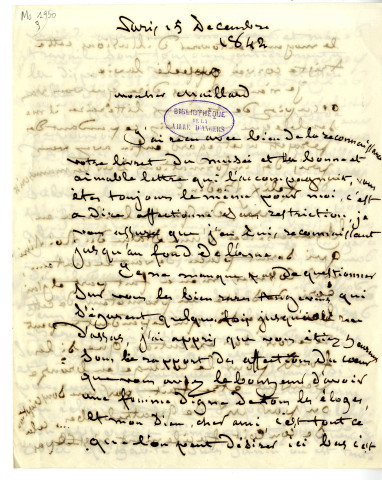 Ms 1950
3
Paris 15 Decembre
1842
monsieur Maillard
BIBLIOTHÈQUE
DE LA
VILLE D'ANGERS
J'ai reçu avec bien de la reconnaissance
votre livret du musée et la bonne et
aimable lettre qui l'accompagnait, vous
êtes toujours le même pour moi, c'est
a dire affectionné sans restriction, je
vous assure que j'en suis reconnaissant
jusqu'au fond de l'âme.
Je ne manque pas de questionner
sur vous les bien rares angevins qui
s'égarent quelque fois jusqu'à la rue
d'assas, j'ai appris que vous étiez heureux
sous le rapport des affections du cœur
que vous avez le bonheur d'avoir
une femme digne de tous les éloges,
Et mon Dieu, cher ami, c'est tout ce
que l'on peut désirer ici bas c'est